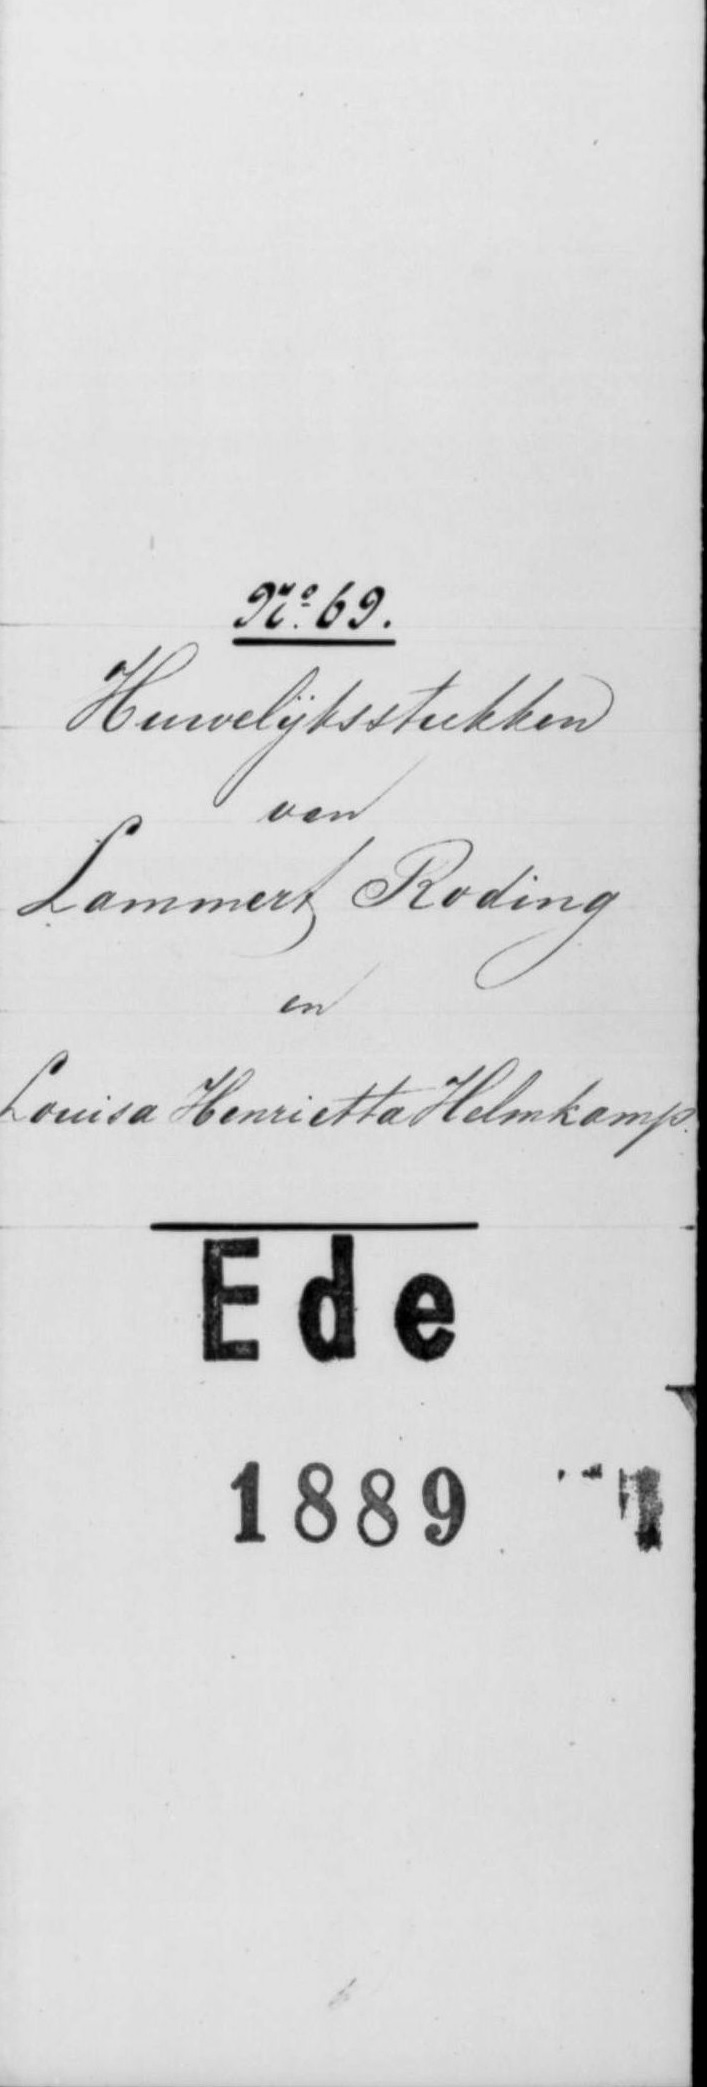 No. 69.
Huwelijksstukken
van
Lammert Roding
en
Louisa Henrietta Helmkamp.
Ede
1889